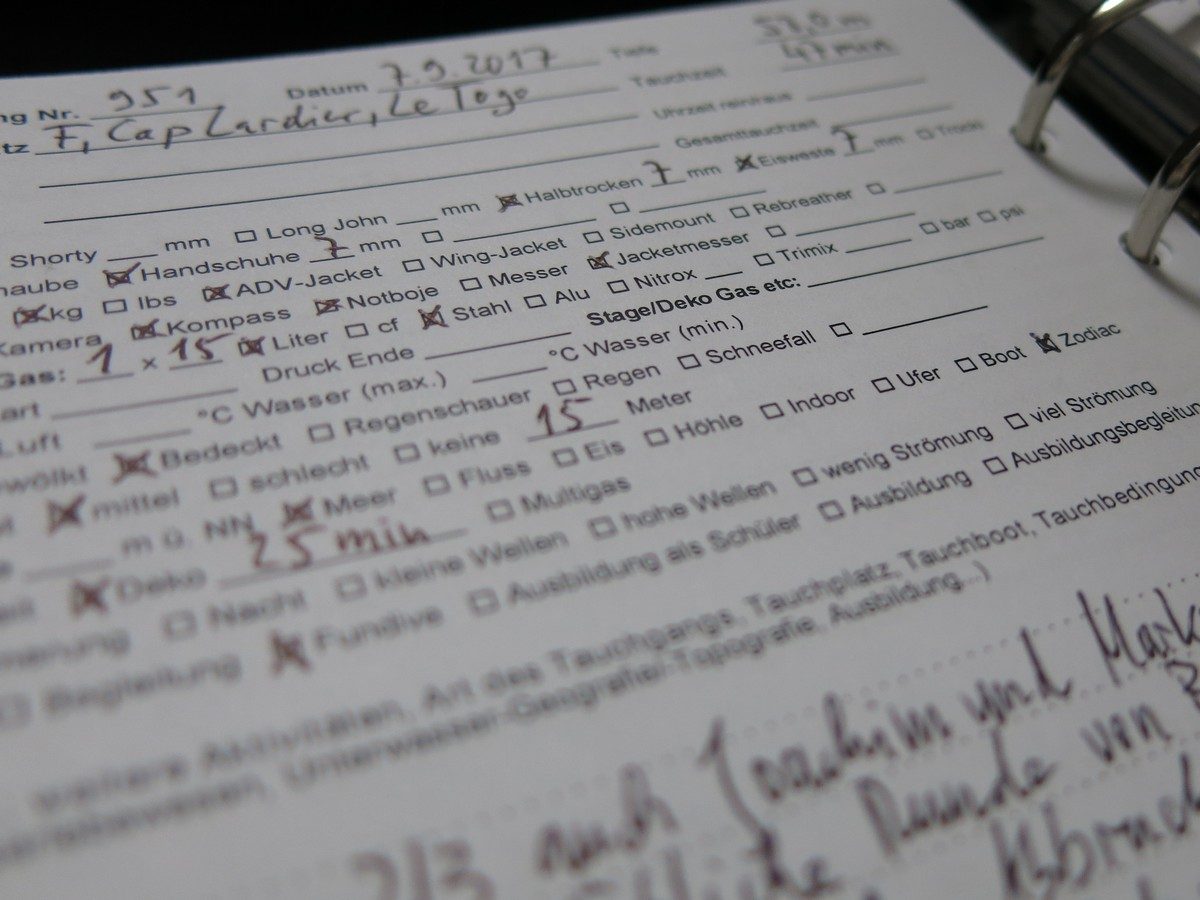 ng Nr. 951 Datum 7.9.2017 Tiefe 57,0 m
tz F, Cap Lardier, Le Togo Tauchzeit 47 min
Uhrzeit rein/raus
Gesamttauchzeit
Shorty mm ☐ Long John mm ☒ Halbtrocken 7 mm ☒ Eisweste 7 mm ☐ Trocki
haube ☒ Handschuhe 7 mm ☐ ☐
☒ kg ☐ lbs ☒ ADV-Jacket ☐ Wing-Jacket ☐ Sidemount ☐ Rebreather ☐
Kamera ☒ Kompass ☒ Notboje ☐ Messer ☒ Jacketmesser ☐
Gas: 1 x 15 ☒ Liter ☐ cf ☒ Stahl ☐ Alu ☐ Nitrox ☐ Trimix ☐ bar ☐ psi
art Druck Ende Stage/Deko Gas etc:
Luft °C Wasser (max.) °C Wasser (min.)
wölkt ☒ Bedeckt ☐ Regenschauer ☐ Regen ☐ Schneefall ☐
☒ mittel ☐ schlecht ☐ keine 15 Meter
m ü. NN ☒ Meer ☐ Fluss ☐ Eis ☐ Höhle ☐ Indoor ☐ Ufer ☐ Boot ☒ Zodiac
☒ Deko 25 min ☐ Multigas
☐ Nacht ☐ kleine Wellen ☐ hohe Wellen ☐ wenig Strömung ☐ viel Strömung
☐ Begleitung ☒ Fundive ☐ Ausbildung als Schüler ☐ Ausbildung ☐ Ausbildungsbegleitun
weitere Aktivitäten, Art des Tauchgangs, Tauchplatz, Tauchboot, Tauchbedingung
Unterwasser-Geografie/-Topografie, Ausbildung...)
Joachim und Mark
Runde von